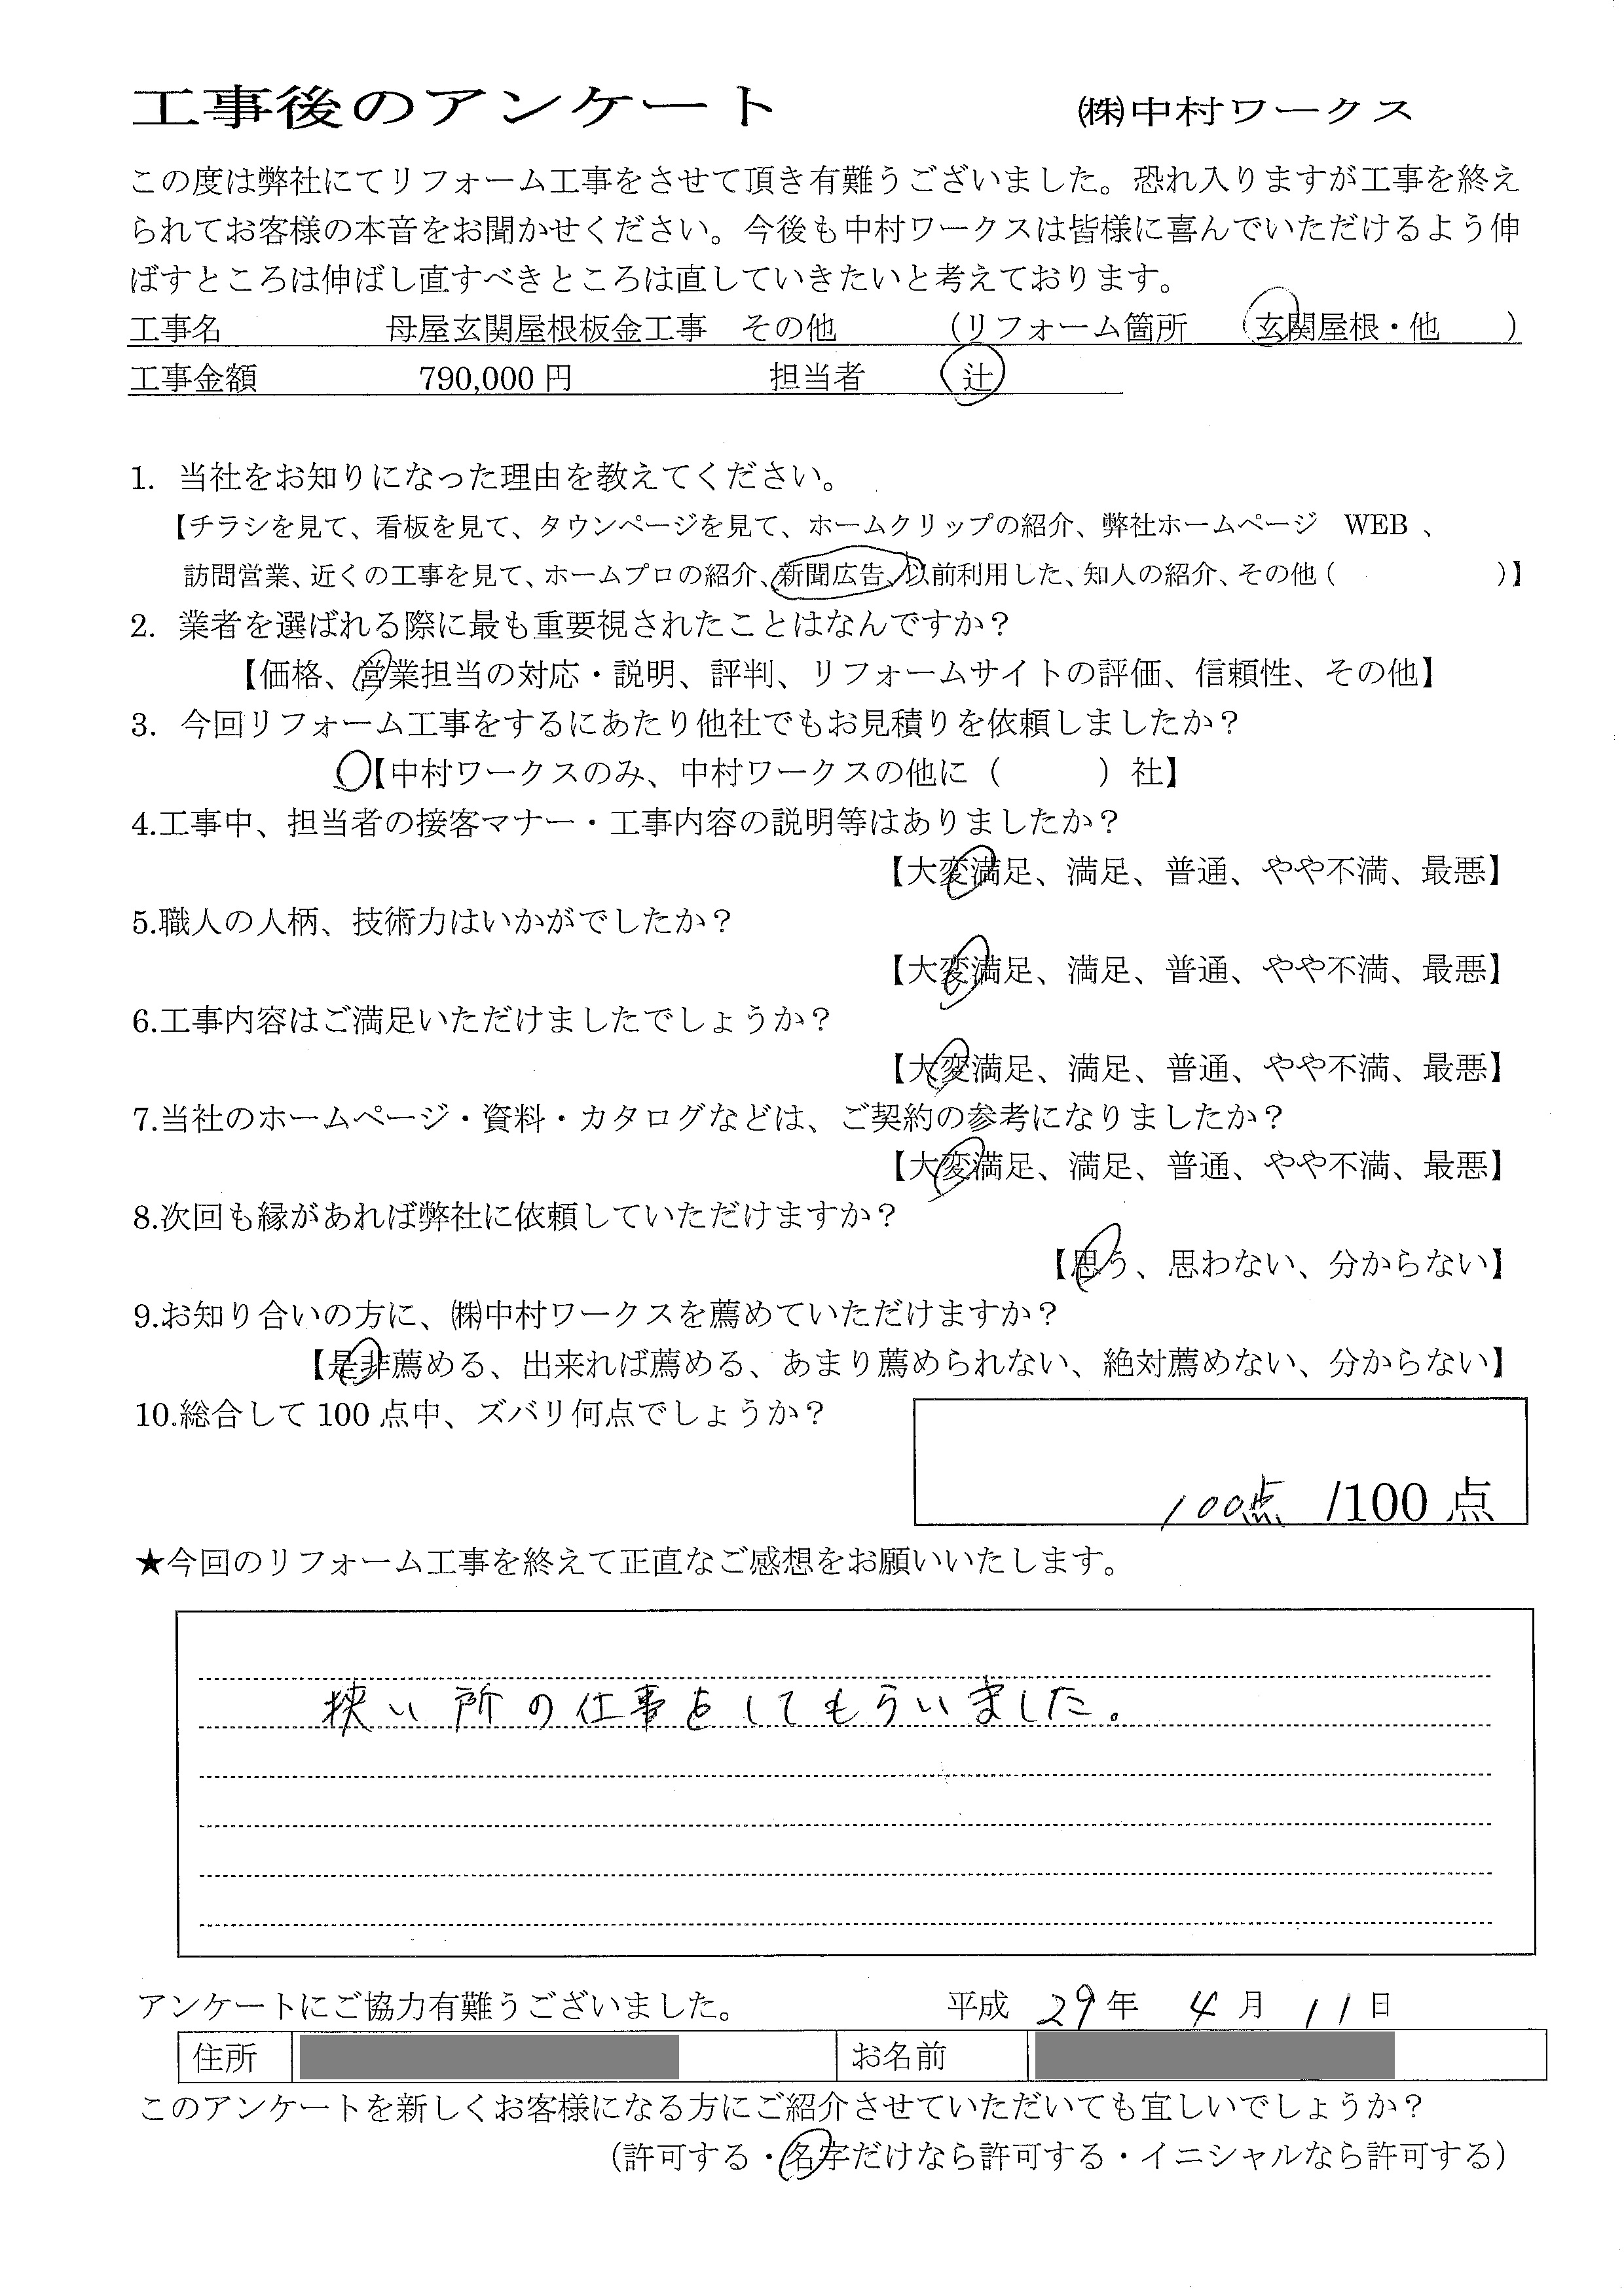 工事後のアンケート　㈱中村ワークス
この度は弊社にてリフォーム工事をさせて頂き有難うございました。恐れ入りますが工事を終え
られてお客様の本音をお聞かせください。今後も中村ワークスは皆様に喜んでいただけるよう伸
ばすところは伸ばし直すべきところは直していきたいと考えております。
工事名　母屋玄関屋根板金工事　その他　（リフォーム箇所　（玄関屋根・他　）
工事金額　790,000 円　担当者　辻
1. 当社をお知りになった理由を教えてください。
【チラシを見て、看板を見て、タウンページを見て、ホームクリップの紹介、弊社ホームページ　WEB 、
訪問営業、近くの工事を見て、ホームプロの紹介、新聞広告、以前利用した、知人の紹介、その他（　）】
2. 業者を選ばれる際に最も重要視されたことはなんですか？
【価格、営業担当の対応・説明、評判、リフォームサイトの評価、信頼性、その他】
3. 今回リフォーム工事をするにあたり他社でもお見積りを依頼しましたか？
【中村ワークスのみ、中村ワークスの他に（　）社】
4.工事中、担当者の接客マナー・工事内容の説明等はありましたか？
【大変満足、満足、普通、やや不満、最悪】
5.職人の人柄、技術力はいかがでしたか？
【大変満足、満足、普通、やや不満、最悪】
6.工事内容はご満足いただけましたでしょうか？
【大変満足、満足、普通、やや不満、最悪】
7.当社のホームページ・資料・カタログなどは、ご契約の参考になりましたか？
【大変満足、満足、普通、やや不満、最悪】
8.次回も縁があれば弊社に依頼していただけますか？
【思う、思わない、分からない】
9.お知り合いの方に、㈱中村ワークスを薦めていただけますか？
【是非薦める、出来れば薦める、あまり薦められない、絶対薦めない、分からない】
10.総合して 100 点中、ズバリ何点でしょうか？
100点 /100 点
★今回のリフォーム工事を終えて正直なご感想をお願いいたします。
狭い所の仕事をしてもらいました。
アンケートにご協力有難うございました。　平成 29 年 4 月 11 日
住所　お名前
このアンケートを新しくお客様になる方にご紹介させていただいても宜しいでしょうか？
（許可する・名字だけなら許可する・イニシャルなら許可する）